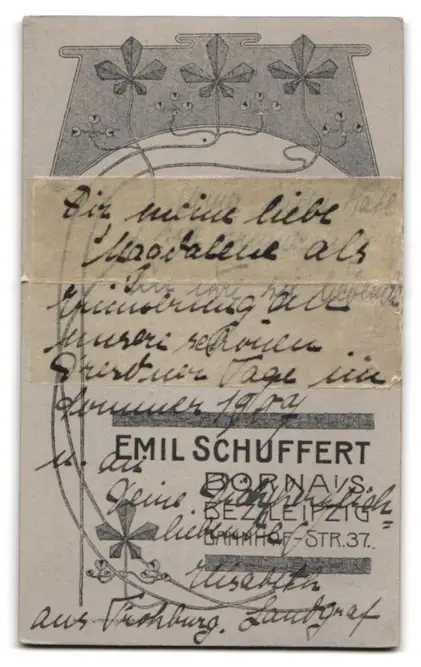 Dir meine liebe
Magdalene als
Erinnerung an
unsere schönen
Dresdner Tage im
Sommer 1909
EMIL SCHUFFERT
u. an
BORNA I/S.
Deine
BEZ. LEIPZIG
liebende
BAHNHOF-STR. 37.
Elisabeth
aus Frohburg. Landgraf